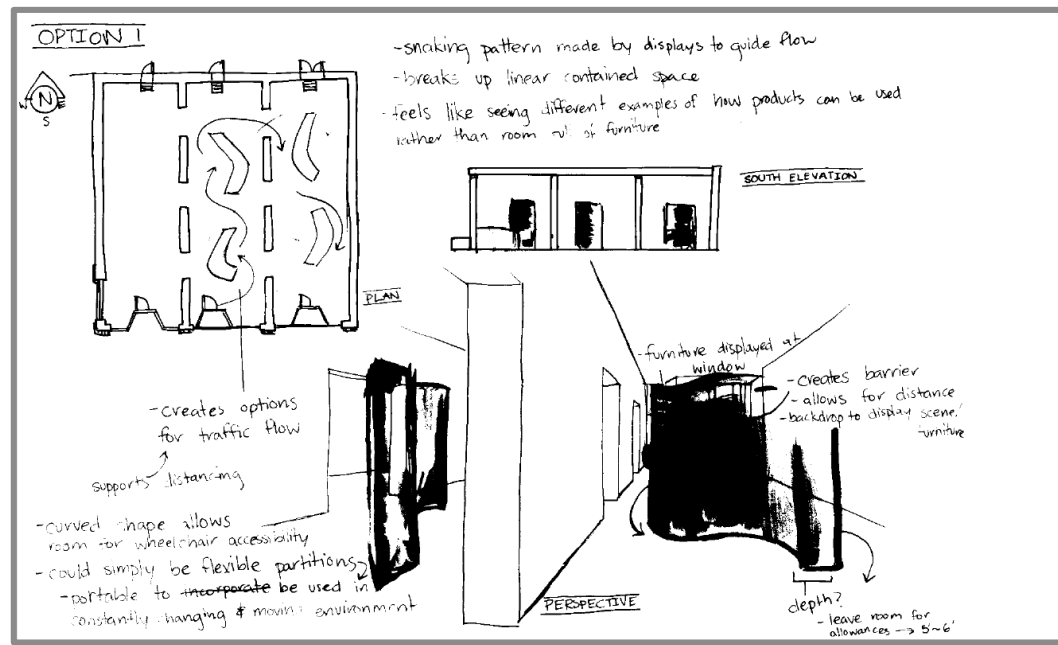 OPTION 1
N
S
-snaking pattern made by displays to guide flow
-breaks up linear contained space
-feels like seeing different examples of how products can be used
rather than room of furniture
SOUTH ELEVATION
PLAN
-creates options
for traffic flow
supports distancing
-curved shape allows
room for wheelchair accessibility
-could simply be flexible partitions
-portable to incorporate be used in
constantly changing & moving environment
-furniture displayed at
window
-creates barrier
-allows for distance
-backdrop to display scene/
furniture
PERSPECTIVE
depth?
-leave room for
allowances → 5'~6'